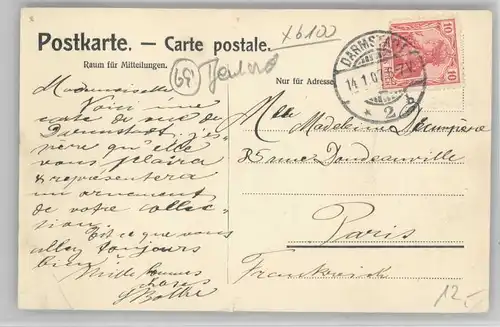 Postkarte. — Carte postale.
xb100
Raum für Mitteilungen.
Nur für Adresse
DARMSTADT
14.1.0
* 2
10 10
Mademoiselle
Voici une
carte de vue de
Darmstadt; j'es-
père qu'elle
vous plaira
& représentera
un ornement
de votre collec-
tion.
Est ce que vous
allez toujours
bien?
Mille bonnes
choses
Mlle Madeleine
Paris
Frankreich
12,-